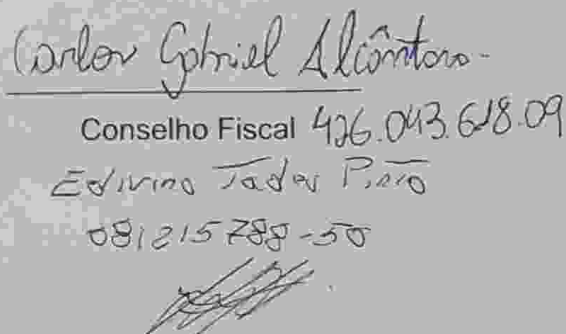 Carlos Gabriel Alcântara
Conselho Fiscal 426.043.618.09
Edivino Tadeu Pinto
081215788-50